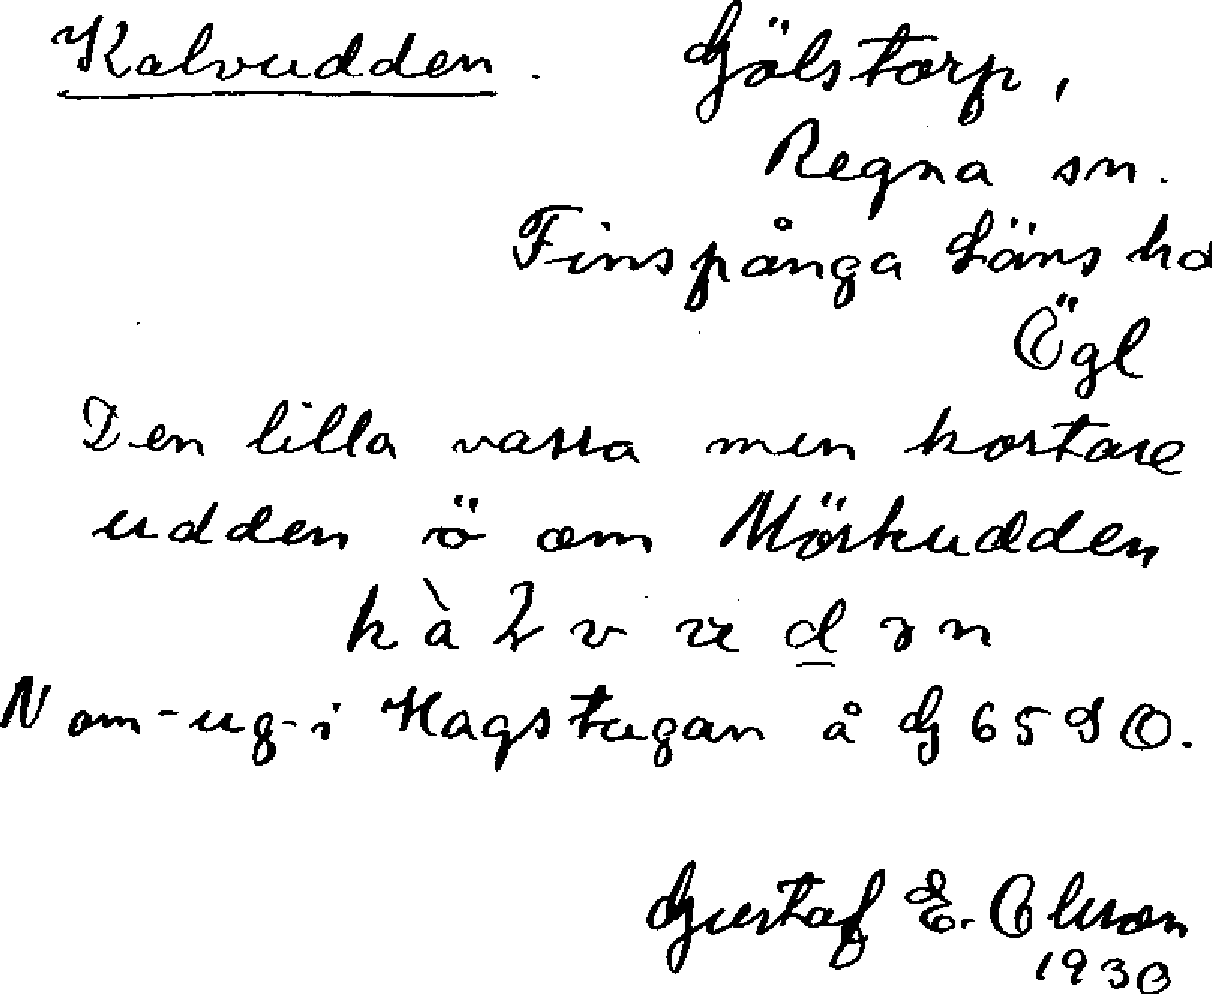 Kalvudden. Gölstorp,
Regna sn.
Finspånga Läns hd
Ögl
Den lilla vassa men kortare
udden ö om Mörkudden
Nom-ug-i Hagstugan å G 65 SO.
Gustaf E. Olsson
1930